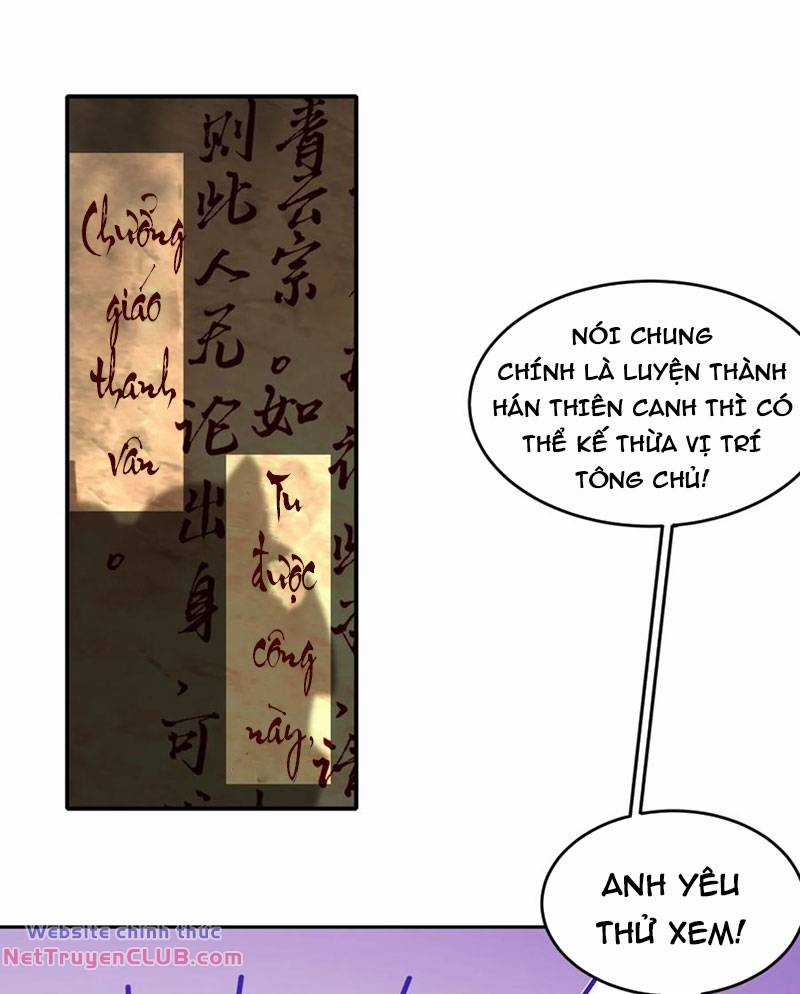 Chưởng
giáo
thanh
vân
Tu
được
công
này,
青云宗。如
则此人无论出身、可
NÓI CHUNG
CHÍNH LÀ LUYỆN THÀNH
HÁN THIÊN CANH THÌ CÓ
THỂ KẾ THỪA VỊ TRÍ
TÔNG CHỦ!
ANH YÊU
THỬ XEM!
Website chính thức
NetTruyenCLUB.com